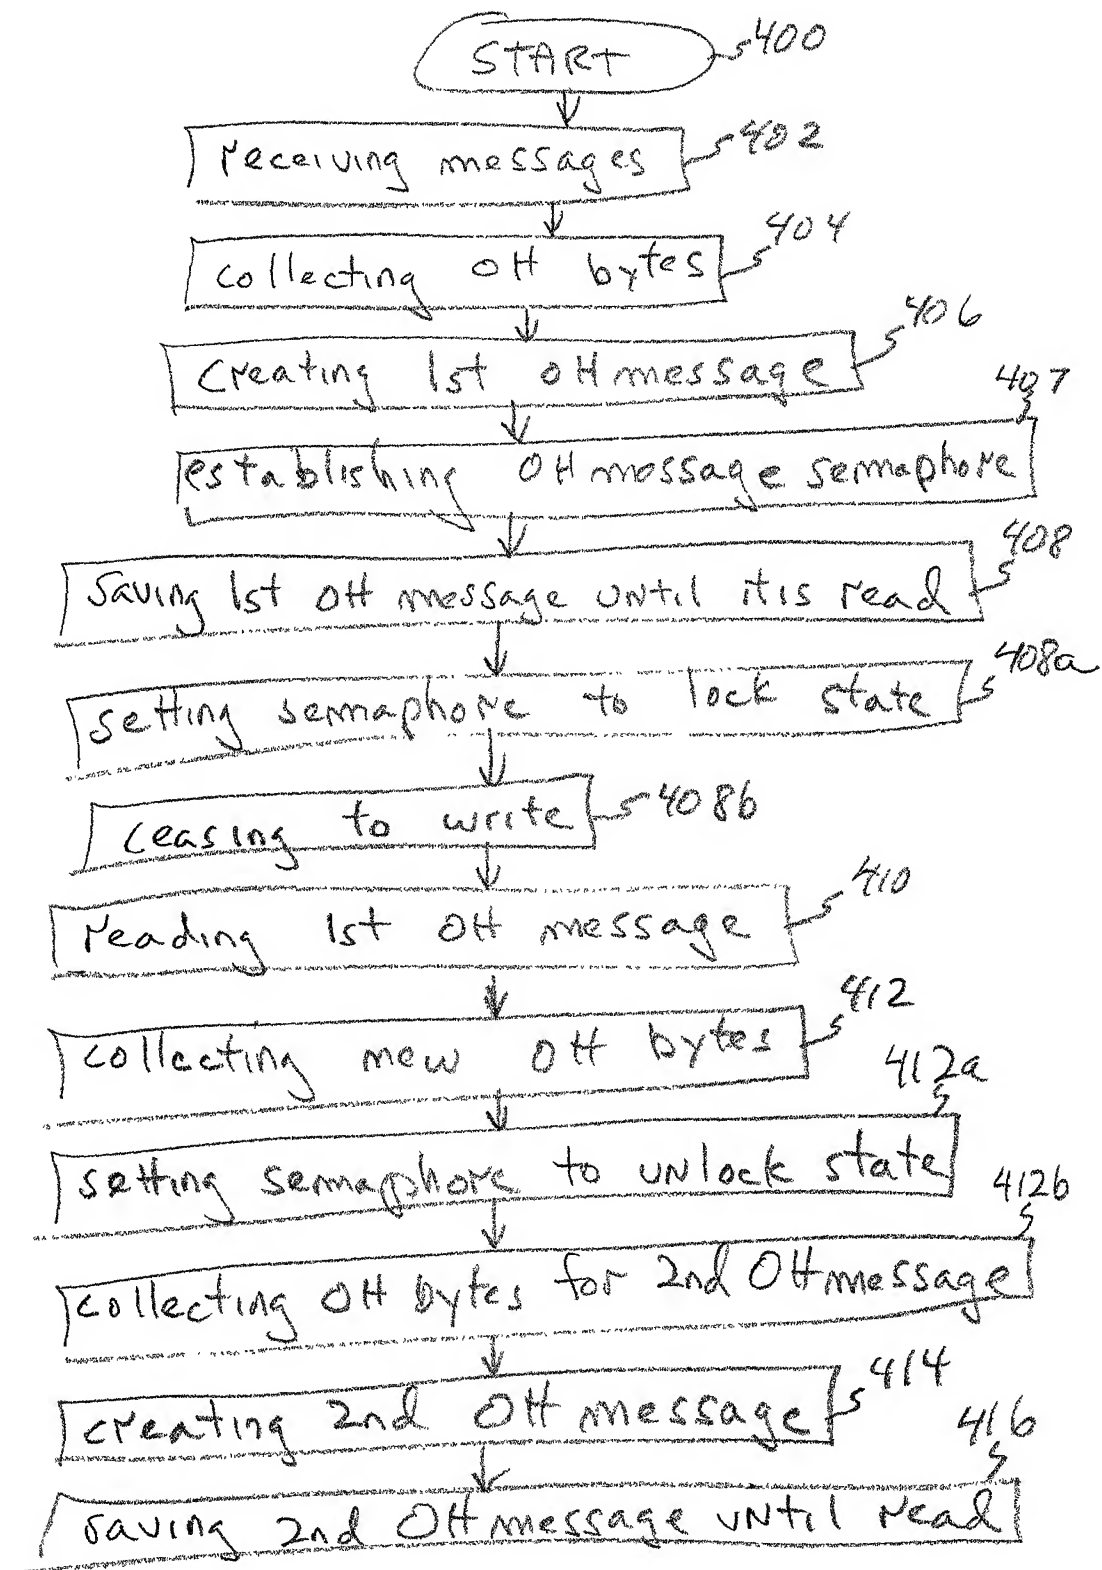 START 400
receiving messages 402
collecting OH bytes 404
creating 1st OH message 406
407
establishing OH message semaphore
saving 1st OH message until it is read 408
setting semaphore to lock state 408a
ceasing to write 408b
reading 1st OH message 410
collecting new OH bytes 412
412a
setting semaphore to unlock state
412b
collecting OH bytes for 2nd OH message
creating 2nd OH message 414
416
saving 2nd OH message until read